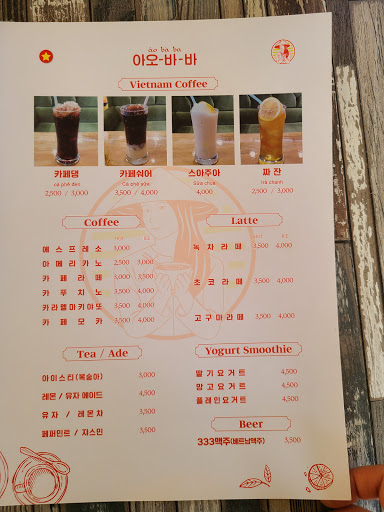 áo ba ba
아오-바-바
Vietnam Coffee
카페댐
cà phê đen
2,500 / 3,000
카페쉬어
Cà phê sữa
3,500 / 4,000
스아주아
Sữa chua
4,000
짜 잔
trà chanh
2,500 / 3,000
Coffee
HOT ICE
에스프레소 3,000
아메리카노 2,500 3,000
카페라떼 3,000 3,500
카푸치노 3,500 4,000
카라멜마키아또 3,500 4,000
카페모카 3,500 4,000
Latte
HOT ICE
녹차라떼 3,500 4,000
초코라떼 3,500 4,000
고구마라떼 3,500 4,000
Tea / Ade
아이스티(복숭아) 3,000
레몬 / 유자 에이드 4,500
유자 / 레몬차 3,500
페퍼민트 / 자스민 3,500
Yogurt Smoothie
딸기요거트 4,500
망고요거트 4,500
플레인요거트 4,500
Beer
333맥주(베트남맥주) 3,500